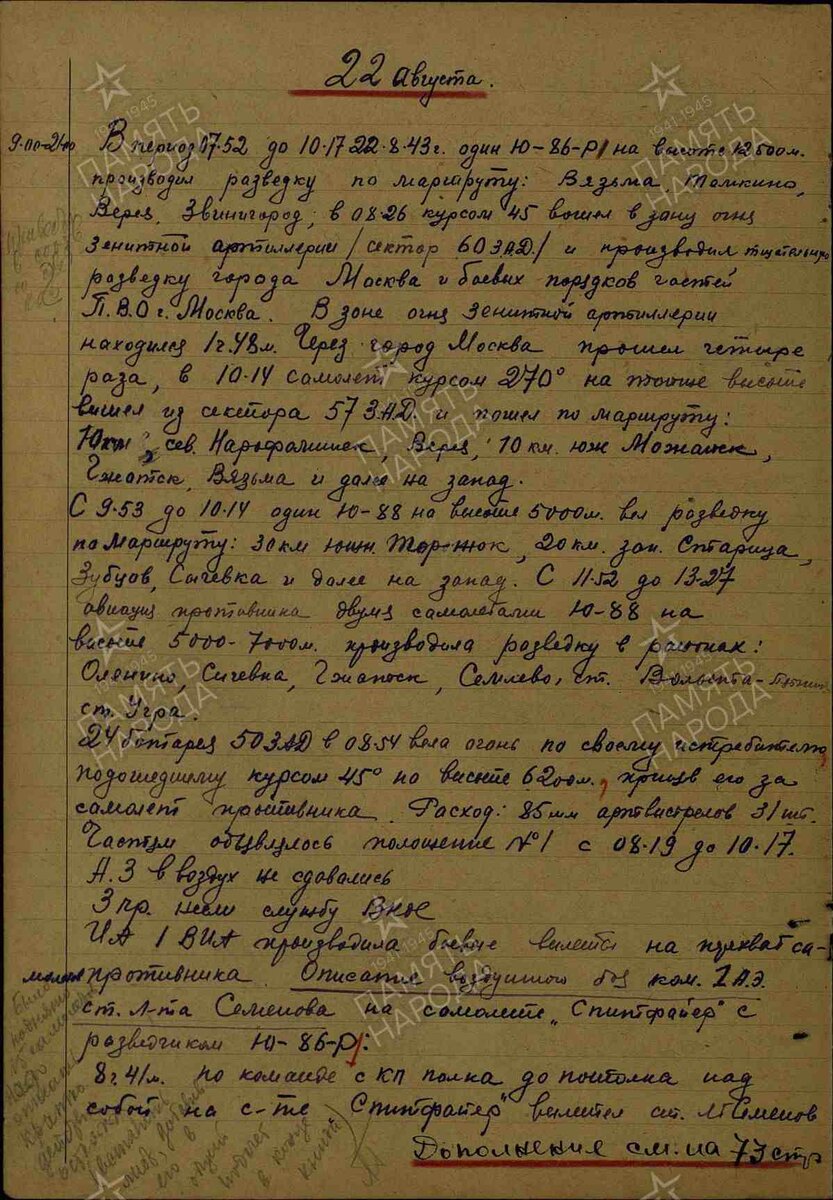 22 августа.
9.00-21.00 В период 07.52 до 10.17 22.8.43 г. один Ю-86-Р1 на высоте 12500 м.
производил разведку по маршруту: Вязьма, Темкино,
Верея, Звинигород; в 08.26 курсом 45 вошел в зону огня
зенитной артиллерии /сектор 60 ЗАД/ и производил тщательную
разведку города Москва и боевых порядков частей
П.В.О г. Москва. В зоне огня зенитной артиллерии
находился 1 ч. 48 м. Через город Москва прошел четыре
раза, в 10.14 самолет курсом 270° на той же высоте
вышел из сектора 57 ЗАД. и пошел по маршруту:
10 км сев. Нарофоминск, Верея, 10 км. юж Можайск,
Гжатск, Вязьма и далее на запад.
С 9.53 до 10.14 один Ю-88 на высоте 5000 м. вел разведку
по маршруту: 30 км южн. Торжок, 20 км. зап. Старица,
Зубцов, Сычевка и далее на запад. С 11.52 до 13.27
авиация противника двумя самолетами Ю-88 на
высоте 5000-7000 м. производила разведку в районах:
Оленино, Сычевка, Гжатск, Семлево, ст.
ст. Угра.
24 батарея 50 ЗАД в 08.54 вела огонь по своему истребителю,
подошедшему курсом 45° на высоте 6200 м., приняв его за
самолет противника. Расход: 85 мм артвыстрелов 31 шт.
Частям объявлялось положение №1 с 08.19 до 10.17.
А.З в воздух не сдавались
3 пр. несли службу ВНОС
ИА 1 ВИА производила боевые вылеты на перехват са-
молета противника. Описание воздушного боя ком. 1 А.Э.
ст. л-та Семенова на самолете „Спитфайер" с
разведчиком Ю-86-Р1:
8 ч. 41 м. по команде с КП полка до потолка над
собой на с-те „Спитфайер" вылетел ст. л-т Семенов
Дополнения см. на 73 стр